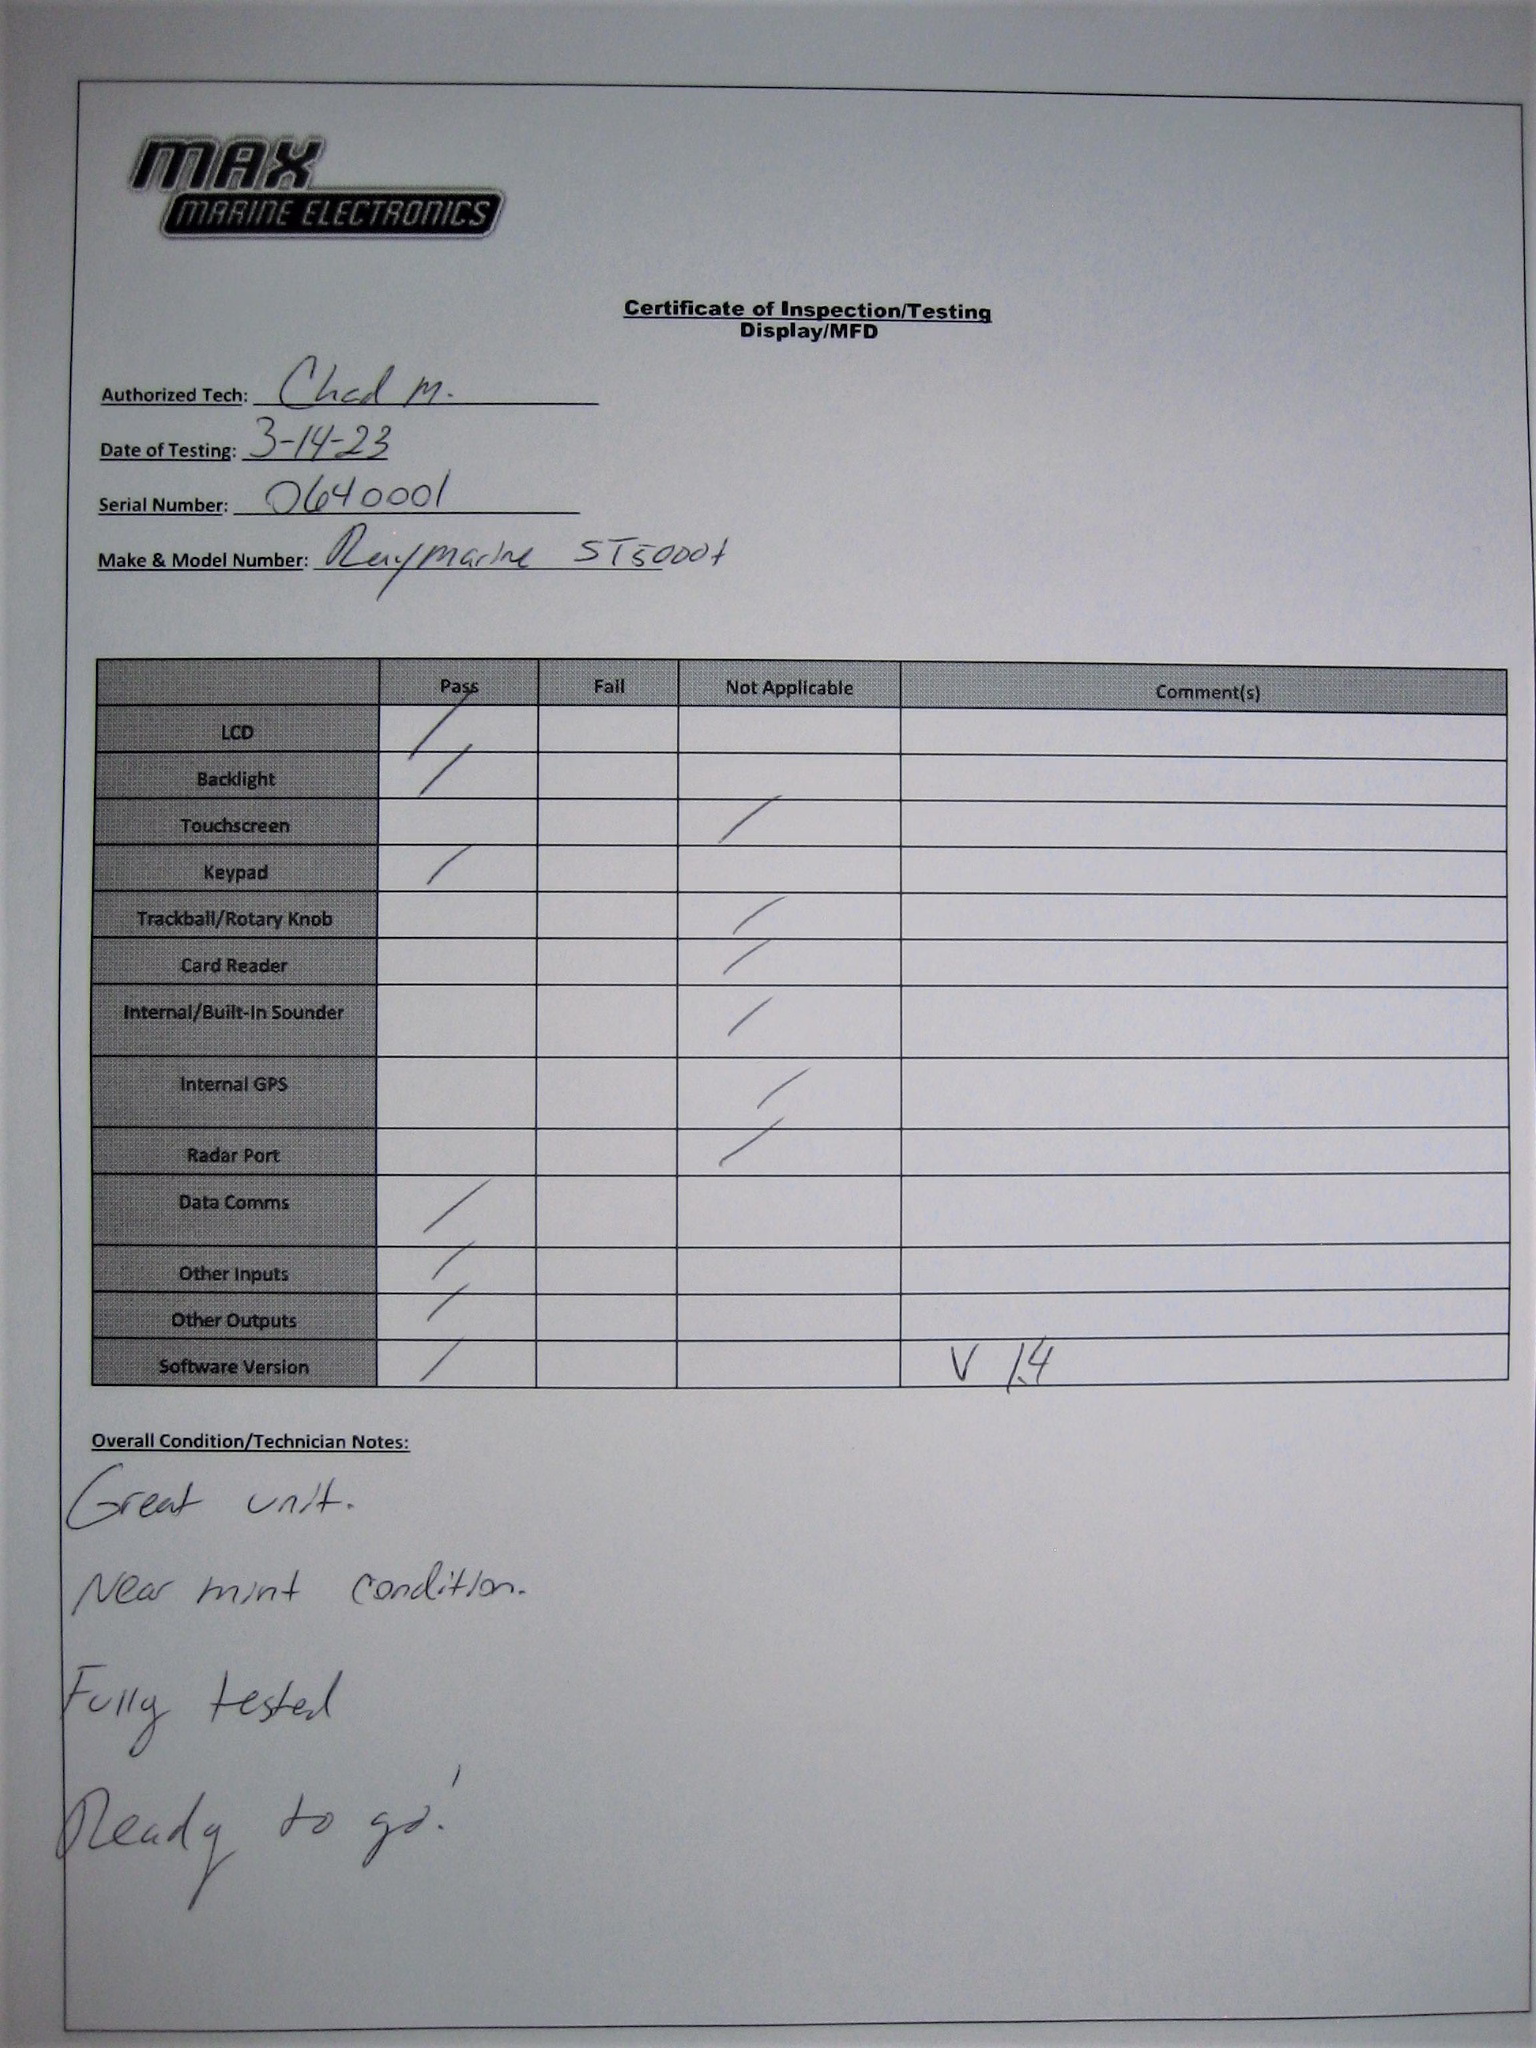 MAX
MARINE ELECTRONICS
Certificate of Inspection/Testing
Display/MFD
Authorized Tech: Chad M.
Date of Testing: 3-14-23
Serial Number: 0640001
Make & Model Number: Raymarine ST5000+
Pass Fail Not Applicable Comment(s)
LCD /
Backlight /
Touchscreen /
Keypad /
Trackball/Rotary Knob /
Card Reader /
Internal/Built-In Sounder /
Internal GPS /
Radar Port /
Data Comms /
Other Inputs /
Other Outputs /
Software Version / V 1.4
Overall Condition/Technician Notes:
Great unit.
Near mint condition.
Fully tested
Ready to go!